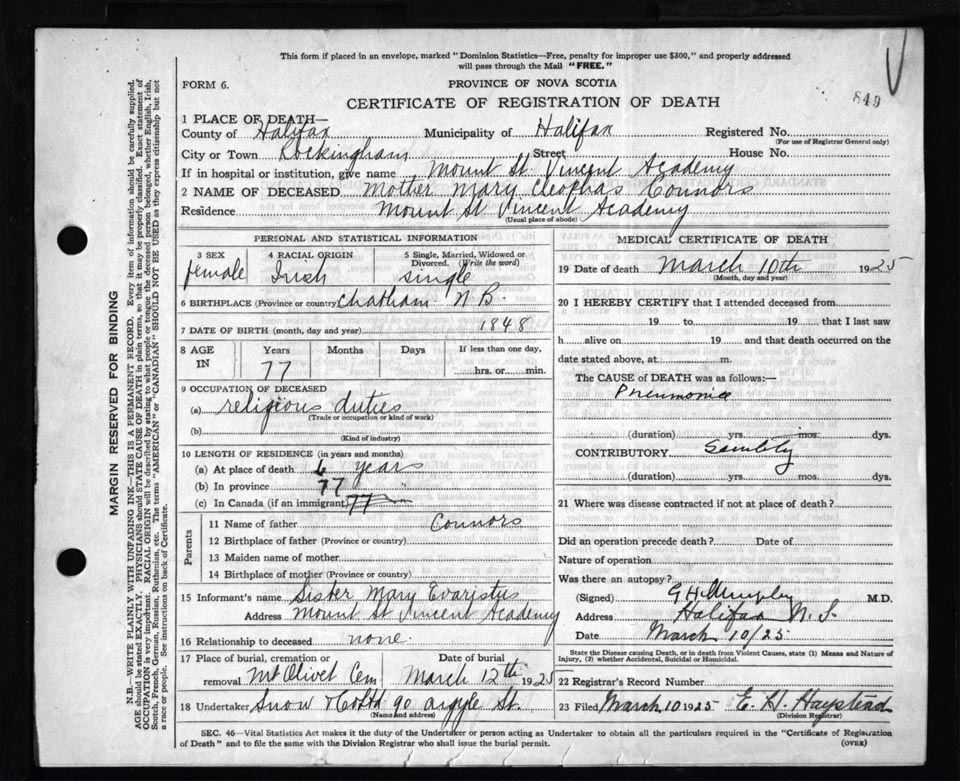 This form if placed in an envelope, marked "Dominion Statistics—Free, penalty for improper use $300," and properly addressed
will pass through the Mail "FREE."
849
FORM 6.
PROVINCE OF NOVA SCOTIA
CERTIFICATE OF REGISTRATION OF DEATH
1 PLACE OF DEATH—
County of Halifax Municipality of Halifax Registered No.
(For use of Registrar General only)
City or Town Rockingham Street House No.
If in hospital or institution, give name Mount St Vincent Academy
2 NAME OF DECEASED Mother Mary Cleophas Connors
Residence Mount St Vincent Academy
(Usual place of abode)
PERSONAL AND STATISTICAL INFORMATION
3 SEX
female
4 RACIAL ORIGIN
Irish
5 Single, Married, Widowed or
Divorced. (Write the word)
single
6 BIRTHPLACE (Province or country) Chatham N B.
7 DATE OF BIRTH (month, day and year) 1848
8 AGE
IN
Years
77
Months
Days
If less than one day,
hrs. or min.
9 OCCUPATION OF DECEASED
(a) religious duties
(Trade or occupation or kind of work)
(b)
(Kind of industry)
10 LENGTH OF RESIDENCE (in years and months)
(a) At place of death 6 years
(b) In province 77 "
(c) In Canada (if an immigrant) 77
Parents
11 Name of father Connors
12 Birthplace of father (Province or country)
13 Maiden name of mother
14 Birthplace of mother (Province or country)
15 Informant's name Sister Mary Evaristus
Address Mount St Vincent Academy
16 Relationship to deceased none.
17 Place of burial, cremation or
removal Mt Olivet Cem
Date of burial
March 12th 1925
18 Undertaker Snow & Co Ltd 90 Argyle St.
(Name and address)
MEDICAL CERTIFICATE OF DEATH
19 Date of death March 10th 1925
(Month, day and year)
20 I HEREBY CERTIFY that I attended deceased from
19 to 19 that I last saw
h alive on 19 and that death occurred on the
date stated above, at m.
The CAUSE OF DEATH was as follows:—
Pneumonia
(duration) yrs. mos. dys.
CONTRIBUTORY Senility
(duration) yrs. mos. dys.
21 Where was disease contracted if not at place of death?
Did an operation precede death? Date of
Nature of operation
Was there an autopsy?
(Signed) G H Murphy M.D.
Address Halifax N. S.
Date March 10/25
State the Disease causing Death, or in death from Violent Causes, state (1) Means and Nature of
Injury, (2) whether Accidental, Suicidal or Homicidal.
22 Registrar's Record Number
23 Filed March 10 1925 E. H. Haystead
(Division Registrar)
SEC. 46—Vital Statistics Act makes it the duty of the Undertaker or person acting as Undertaker to obtain all the particulars required in the "Certificate of Registration
of Death" and to file the same with the Division Registrar who shall issue the burial permit.
(OVER)
MARGIN RESERVED FOR BINDING
N.B.—WRITE PLAINLY WITH UNFADING INK—THIS IS A PERMANENT RECORD. Every item of information should be carefully supplied.
AGE should be stated EXACTLY. PHYSICIANS should STATE CAUSE OF DEATH in plain terms, so that it may be properly classified. Exact statement of
OCCUPATION is very important. RACIAL ORIGIN will be described by stating to what people or tongue the deceased person belonged, whether English, Irish,
Scotch, French, German, Russian, Ruthenian, etc. The terms "AMERICAN" or "CANADIAN" SHOULD NOT BE USED as they express citizenship but not
a race or people. See instructions on back of Certificate.